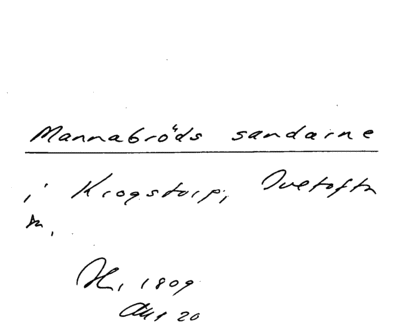 Mannabröds sandarne
i Krogstorp, Ivetofta
sn.
1809
Akt 20